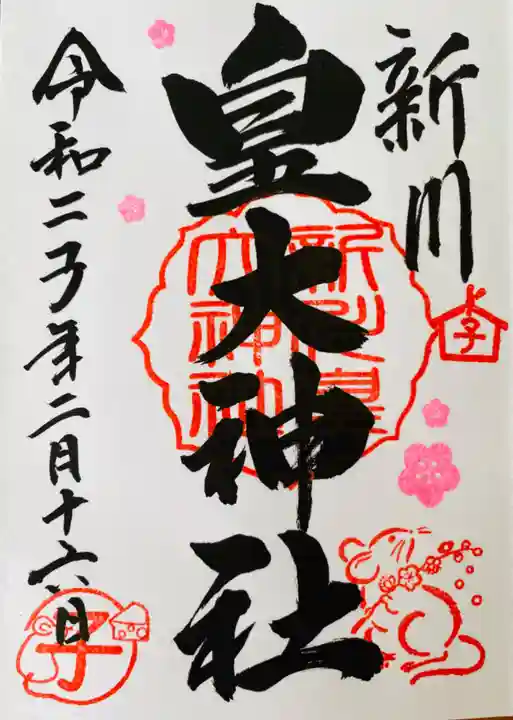 新川
皇大神社
新川皇
大神社
子
令和二子年二月十六日
子